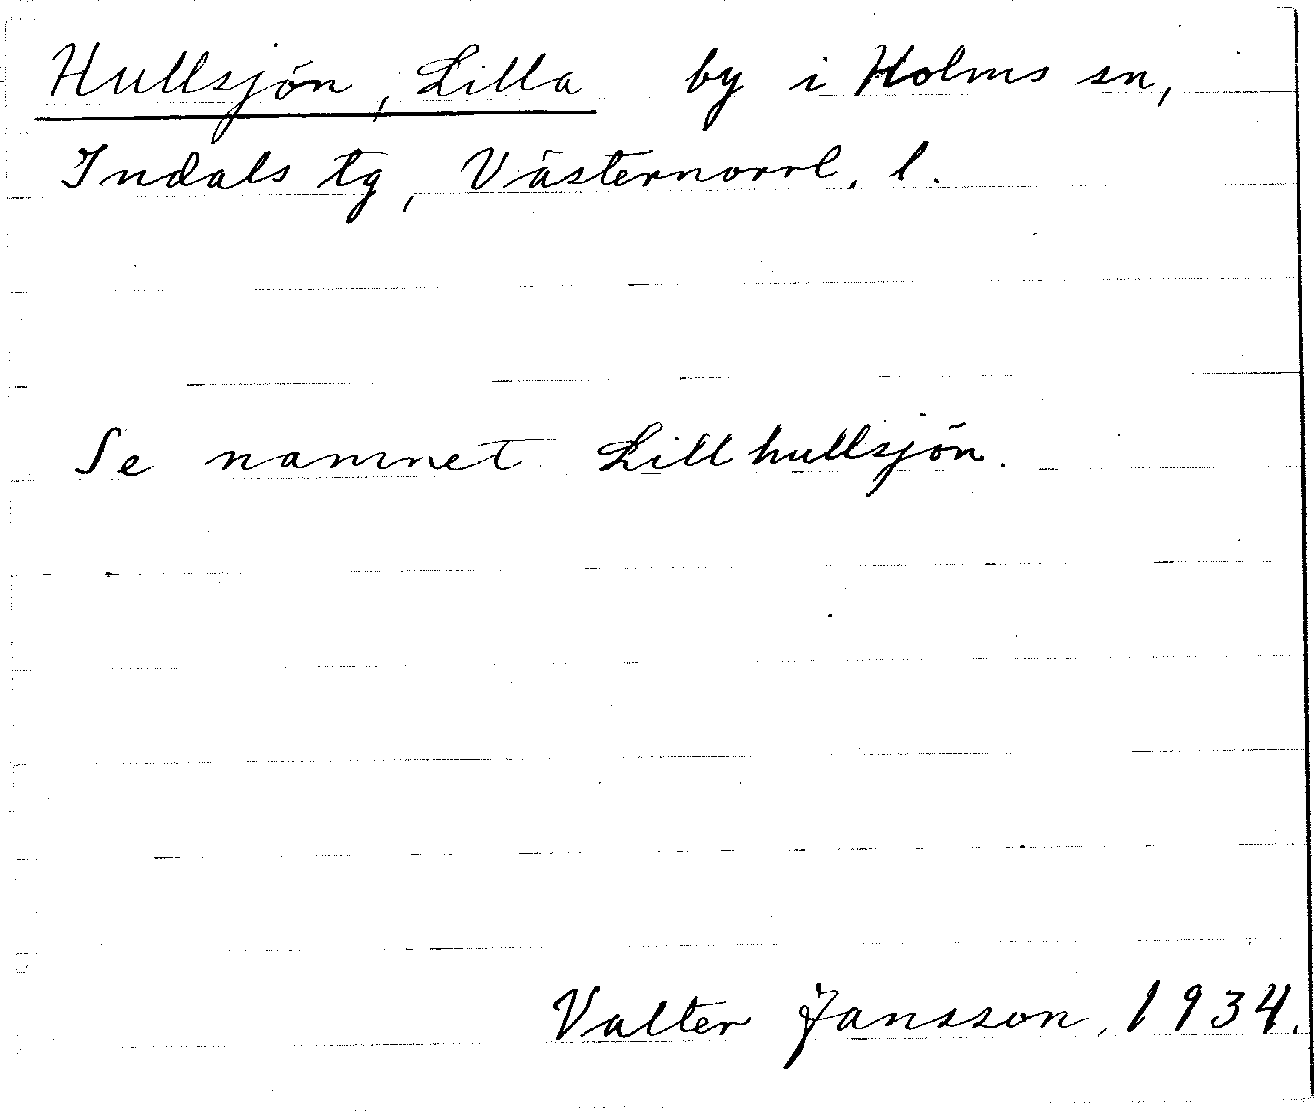 Hullsjön, Lilla by i Holms sn,
Indals tg, Västernorrl. l.
Se namnet Lillhullsjön.
Valter Jansson, 1934.